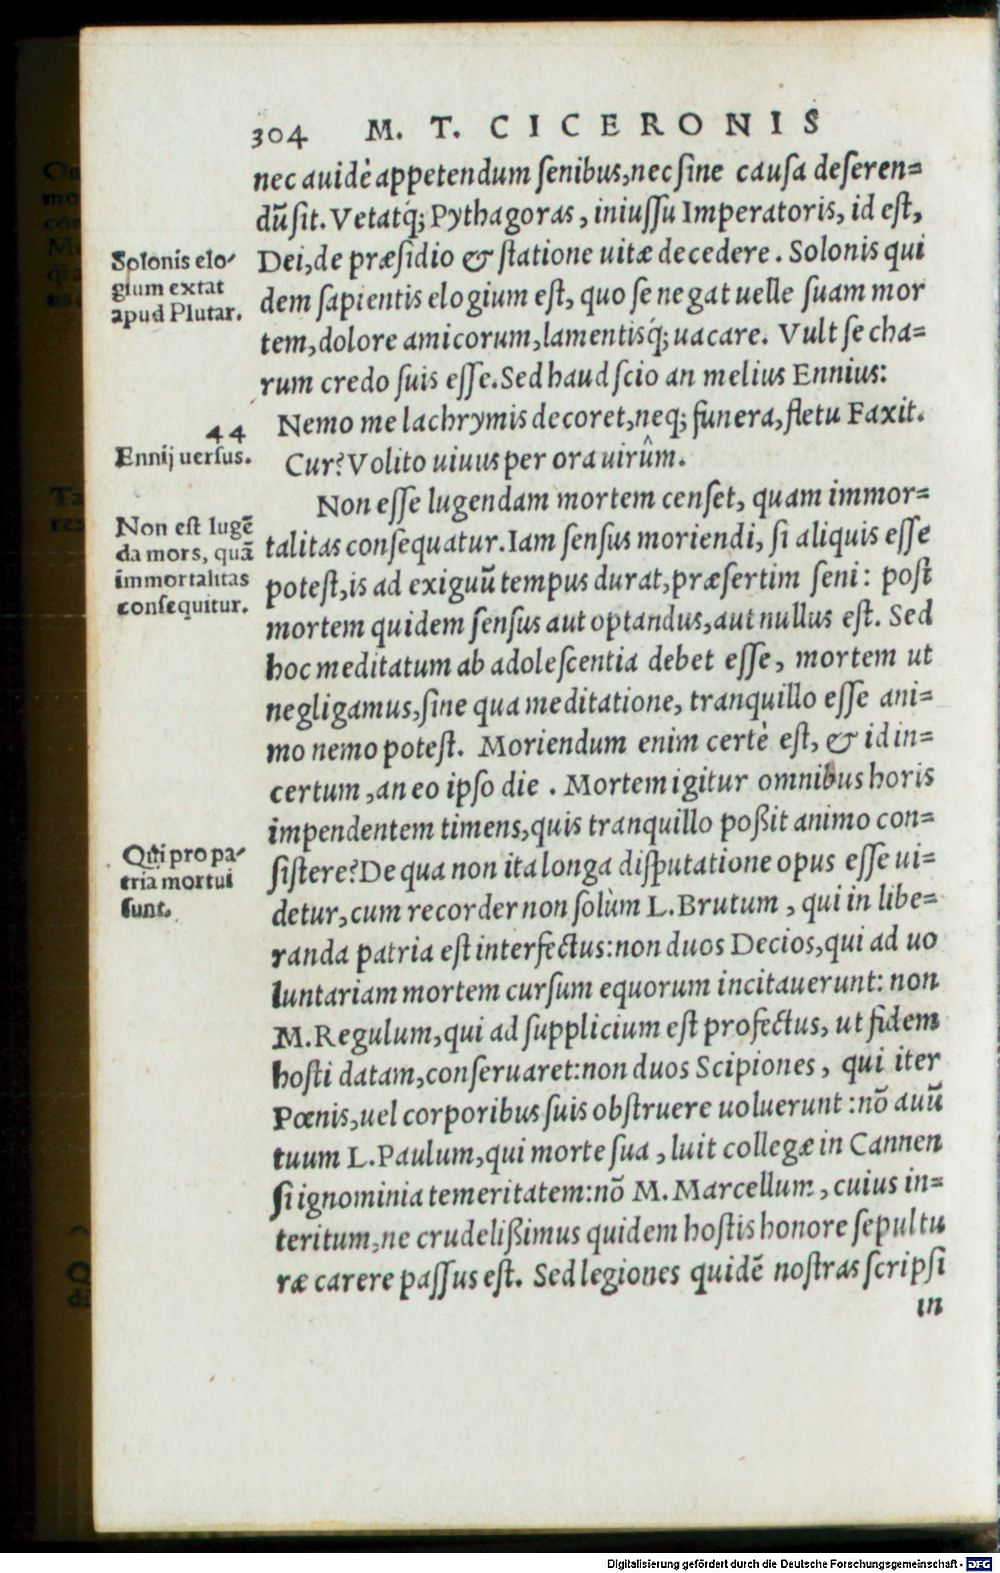 304 M. T. CICERONIS
nec auidè appetendum ſenibus, nec ſine cauſa deſeren=
dũ ſit. Vetatq́; Pythagoras, iniuſſu Imperatoris, id eſt,
Dei, de præſidio & ſtatione uitæ decedere. Solonis qui
dem ſapientis elogium eſt, quo ſe negat uelle ſuam mor
tem, dolore amicorum, lamentisq́; uacare. Vult ſe cha=
rum credo ſuis eſſe. Sed haud ſcio an melius Ennius:
Nemo me lachrymis decoret, neq; funera, fletu Faxit.
Cur? Volito uiuus per ora uirûm.
Non eſſe lugendam mortem cenſet, quam immor=
talitas conſequatur. Iam ſenſus moriendi, ſi aliquis eſſe
poteſt, is ad exiguũ tempus durat, præſertim ſeni: poſt
mortem quidem ſenſus aut optandus, aut nullus eſt. Sed
hoc meditatum ab adoleſcentia debet eſſe, mortem ut
negligamus, ſine qua meditatione, tranquillo eſſe ani=
mo nemo poteſt. Moriendum enim certè eſt, & id in=
certum, an eo ipſo die. Mortem igitur omnibus horis
impendentem timens, quis tranquillo poßit animo con=
ſiſtere? De qua non ita longa diſputatione opus eſſe ui=
detur, cum recorder non ſolùm L. Brutum, qui in libe=
randa patria eſt interfectus: non duos Decios, qui ad uo
luntariam mortem curſum equorum incitauerunt: non
M. Regulum, qui ad ſupplicium eſt profectus, ut fidem
hoſti datam, conſeruaret: non duos Scipiones, qui iter
Pœnis, uel corporibus ſuis obſtruere uoluerunt: nõ auũ
tuum L. Paulum, qui morte ſua, luit collegæ in Cannen
ſi ignominia temeritatem: nõ M. Marcellum, cuius in=
teritum, ne crudelißimus quidem hoſtis honore ſepultu
ræ carere paſſus eſt. Sed legiones quidẽ noſtras ſcripſi
in
Solonis elo-
gium extat
apud Plutar.
44
Ennij uerſus.
Non eſt lugẽ
da mors, quã
immortalitas
conſequitur.
Qui pro pa-
tria mortui
ſunt.
Digitalisierung gefördert durch die Deutsche Forschungsgemeinschaft - DFG